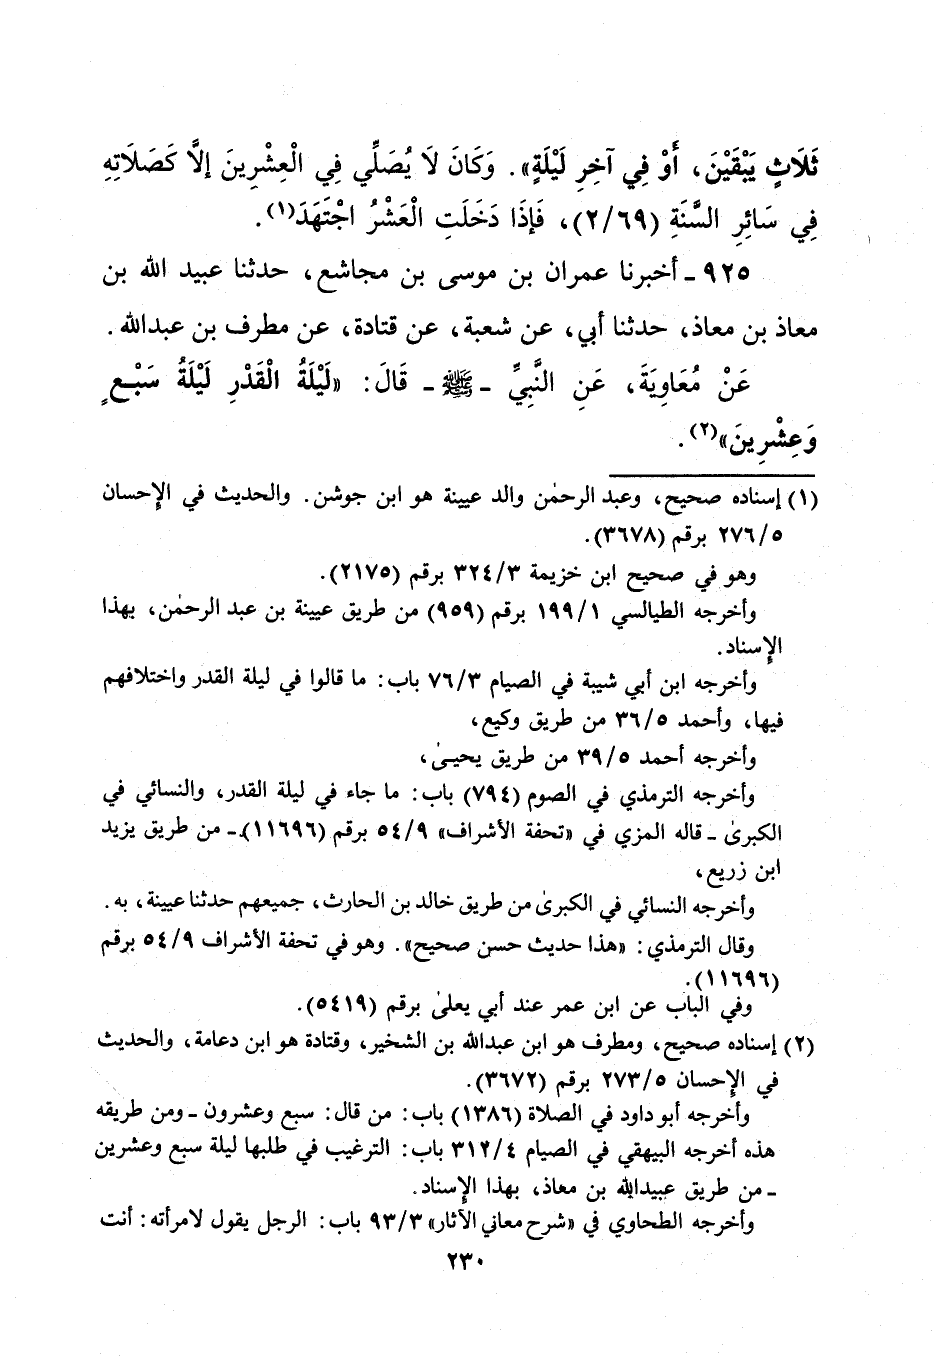 ثَلَاثٍ يَبْقَيْنَ، أَوْ فِي آخِرِ لَيْلَةٍ». وَكَانَ لَا يُصَلِّي فِي الْعِشْرِينَ إلَّا كَصَلَاتِهِ
فِي سَائِرِ السَّنَةِ (٢/٦٩)، فَإذَا دَخَلَتِ الْعَشْرُ اجْتَهَدَ(١).
٩٢٥ ـ أخبرنا عمران بن موسى بن مجاشع، حدثنا عبيد الله بن
معاذ بن معاذ، حدثنا أبي، عن شعبة، عن قتادة، عن مطرف بن عبدالله.
عَنْ مُعَاوِيَةَ، عَنِ النَّبِيِّ ـ ﷺ ـ قَالَ: «لَيْلَةُ الْقَدْرِ لَيْلَةُ سَبْعٍ
وَعِشْرِينَ»(٢).
(١) إسناده صحيح، وعبد الرحمٰن والد عيينة هو ابن جوشن. والحديث في الإحسان
٢٧٦/٥ برقم (٣٦٧٨).
وهو في صحيح ابن خزيمة ٣٢٤/٣ برقم (٢١٧٥).
وأخرجه الطيالسي ١٩٩/١ برقم (٩٥٩) من طريق عيينة بن عبد الرحمٰن، بهذا
الإسناد.
وأخرجه ابن أبي شيبة في الصيام ٧٦/٣ باب: ما قالوا في ليلة القدر واختلافهم
فيها، وأحمد ٣٦/٥ من طريق وكيع،
وأخرجه أحمد ٣٩/٥ من طريق يحيىٰ،
وأخرجه الترمذي في الصوم (٧٩٤) باب: ما جاء في ليلة القدر، والنسائي في
الكبرىٰ ـ قاله المزي في «تحفة الأشراف» ٥٤/٩ برقم (١١٦٩٦) ـ من طريق يزيد
ابن زريع،
وأخرجه النسائي في الكبرىٰ من طريق خالد بن الحارث، جميعهم حدثنا عيينة، به.
وقال الترمذي: «هذا حديث حسن صحيح». وهو في تحفة الأشراف ٥٤/٩ برقم
(١١٦٩٦).
وفي الباب عن ابن عمر عند أبي يعلىٰ برقم (٥٤١٩).
(٢) إسناده صحيح، ومطرف هو ابن عبدالله بن الشخير، وقتادة هو ابن دعامة، والحديث
في الإحسان ٢٧٣/٥ برقم (٣٦٧٢).
وأخرجه أبو داود في الصلاة (١٣٨٦) باب: من قال: سبع وعشرون ـ ومن طريقه
هذه أخرجه البيهقي في الصيام ٣١٢/٤ باب: الترغيب في طلبها ليلة سبع وعشرين
ـ من طريق عبيدالله بن معاذ، بهذا الإسناد.
وأخرجه الطحاوي في «شرح معاني الآثار» ٩٣/٣ باب: الرجل يقول لامرأته: أنت
٢٣٠